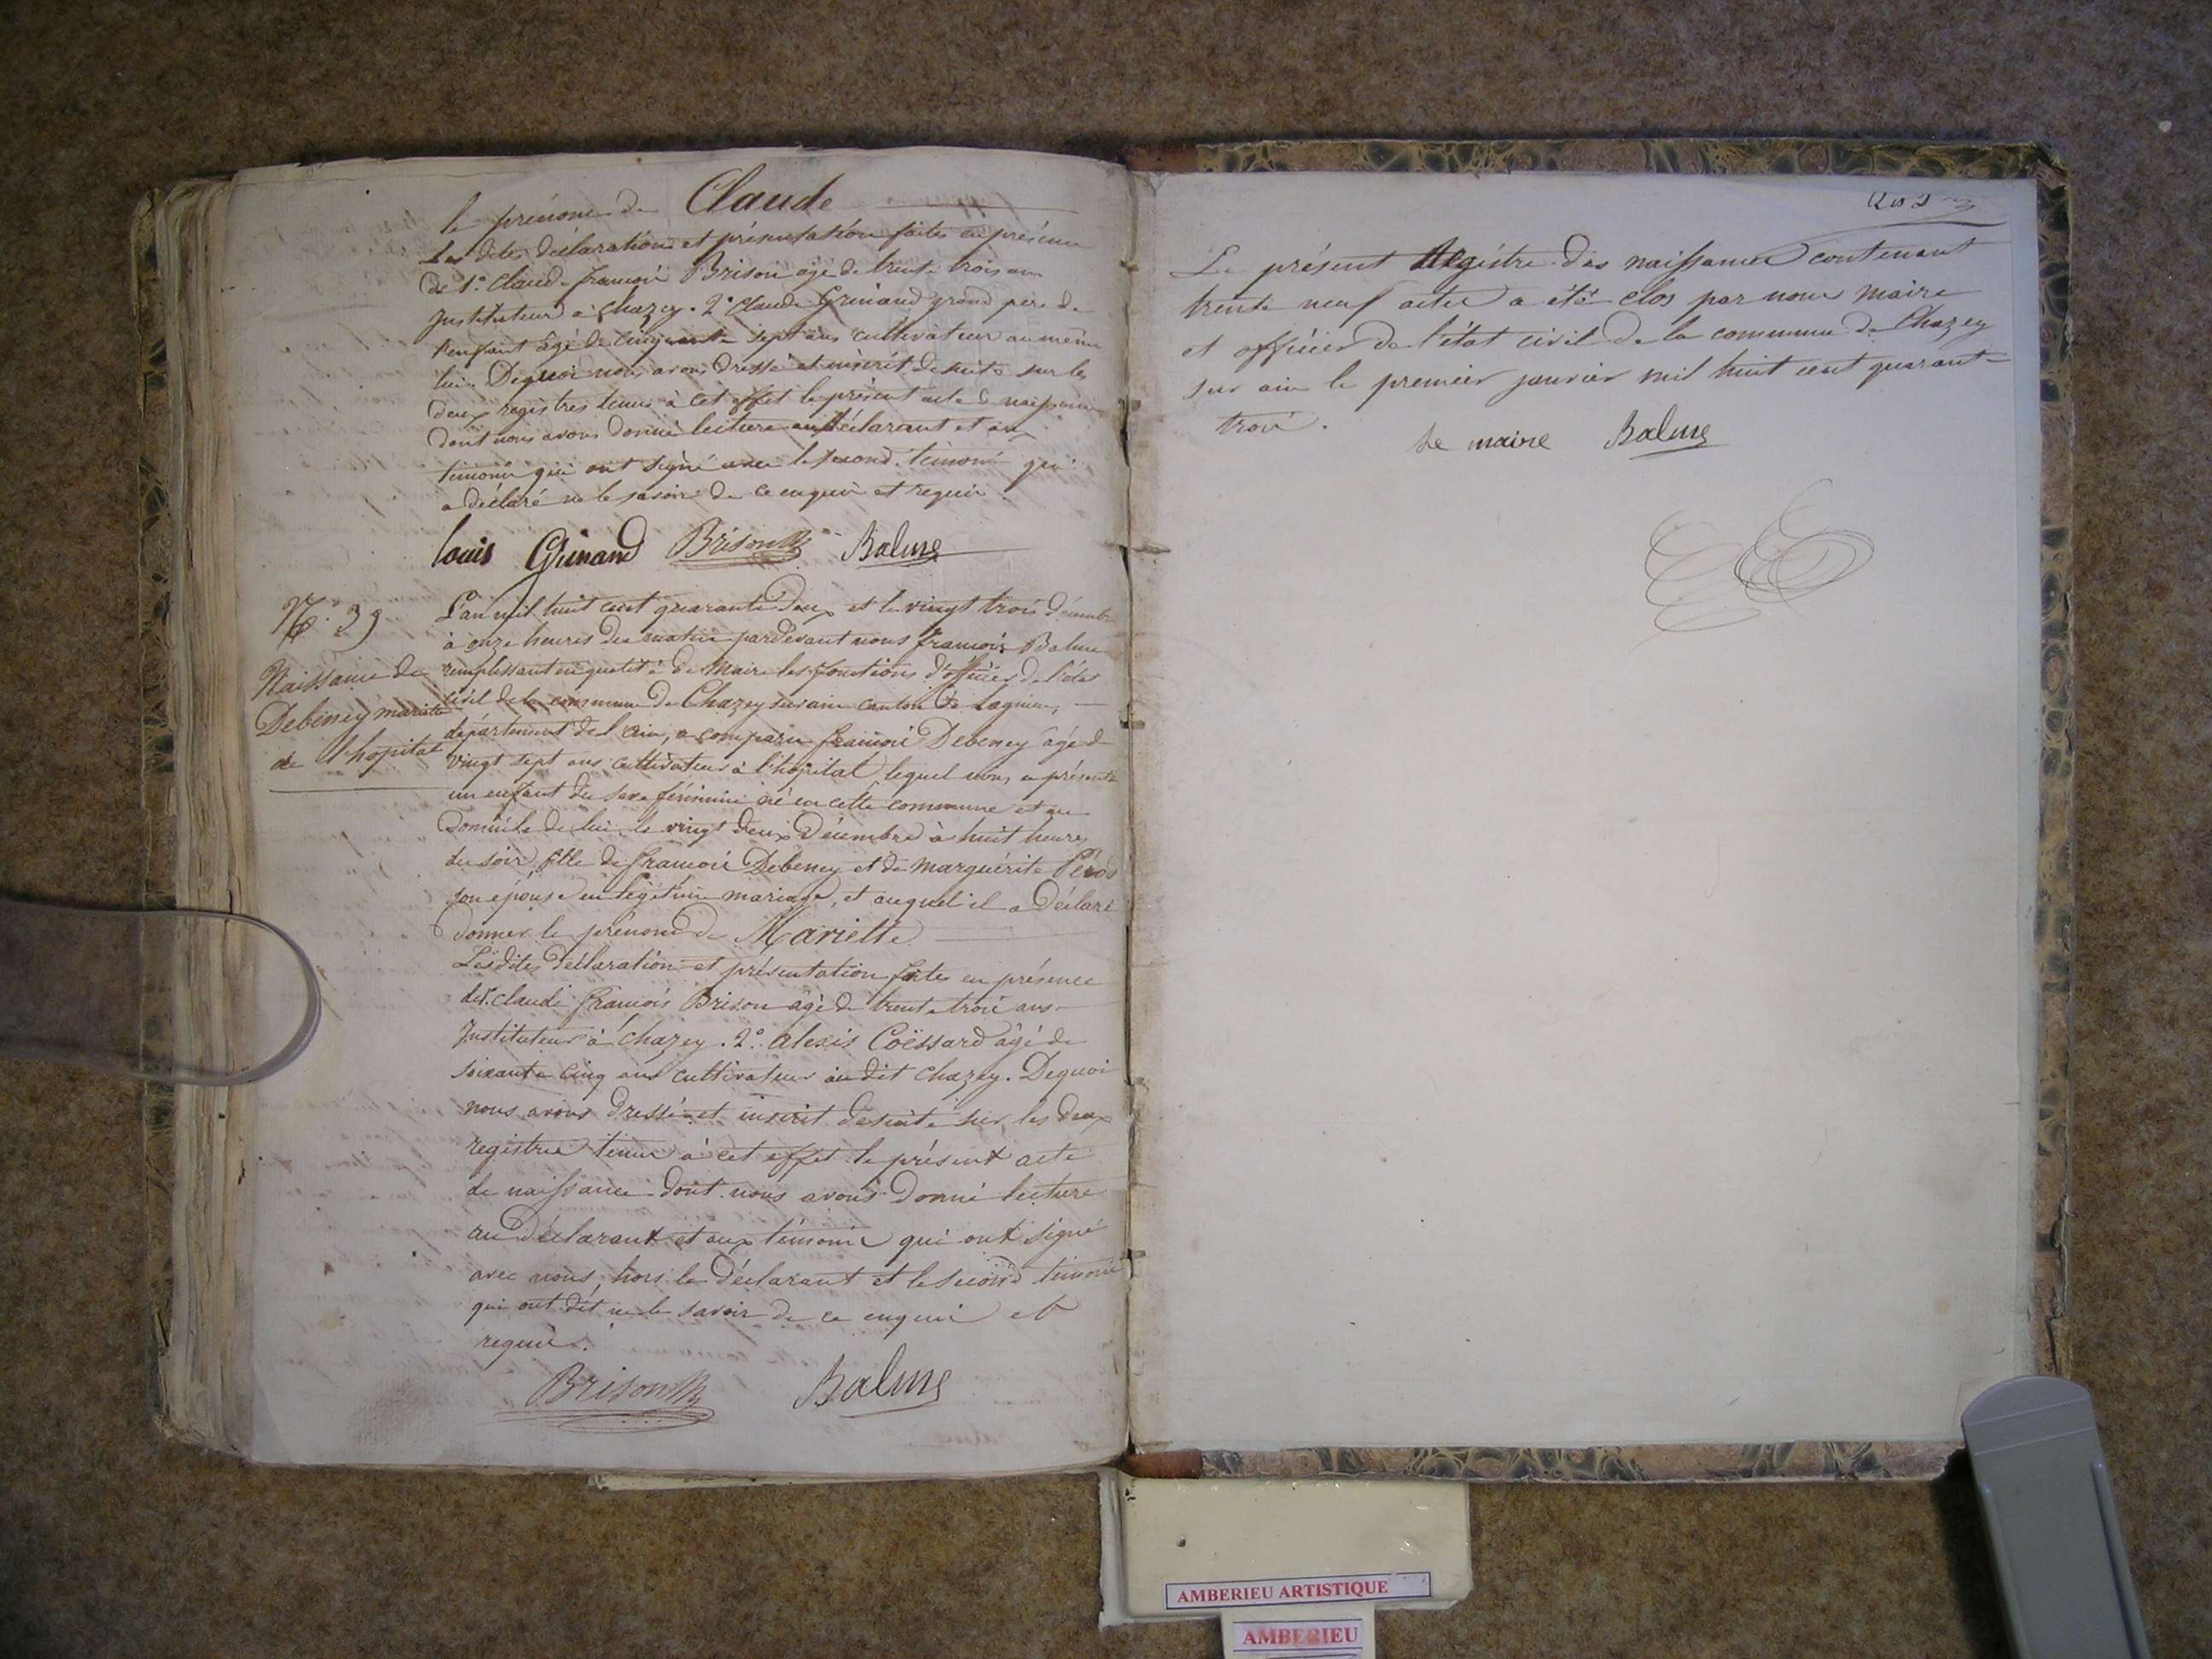 le prénom de Claude
Les dites déclaration et présentation faites en présence
de 1.° Claude françois Brison âgé de trente trois ans
Instituteur à Chazey. 2.° Claude Grinand grand père de
l'enfant âgé de cinquante sept ans cultivateur au même
lieu. Dequoi nous avons dressé et inscrit desuite sur les
deux registres tenus à cet effet le présent acte de naissance
dont nous avons donné lecture au déclarant et aux
témoins qui ont signé avec le second témoin qui
a déclaré ne le savoir de ce enquis et requis.
louis Grinand Brison Balme
N.° 39
Naissance de
Debeney mariette
de l'hopital
L'an mil huit cent quarante deux et le vingt trois décembre
à onze heures du matin pardevant nous françois Balme
remplissant en qualité de Maire les fonctions d'officier de l'état
civil de la commune de Chazey sur ain canton de Lagnieu,
département de l'ain, a comparu françois Debeney âgé de
vingt sept ans cultivateur à l'hôpital lequel nous a présenté
un enfant du sexe féminin né en cette commune et au
domicile de lui le vingt deux Décembre à huit heures
du soir fille de françois Debeney et de marguérite
son épouse en légitime mariage, et auquel il a Déclaré
donner le prénom de Mariette
Les dites déclaration et présentation faites en présence
de 1.° claude françois Brison âgé de trente trois ans
Instituteur à Chazey. 2.° alexis Coëssard âgé de
soixante cinq ans cultivateur au dit chazey. Dequoi
nous avons dressé et inscrit desuite sur les deux
registres tenus à cet effet le présent acte
de naissance dont nous avons donné lecture
au déclarant et aux témoins qui ont signé
avec nous, hors le déclarant et le second témoin
qui ont dit ne le savoir de ce enquis et
requis.
Brison Balme
Le présent Régistre des naissances contenant
trente neuf actes a été clos par nous maire
et officier de l'état civil de la commune de Chazey
sur ain le premier janvier mil huit cent quarante
trois.
Le maire Balme
AMBERIEU ARTISTIQUE
AMBERIEU